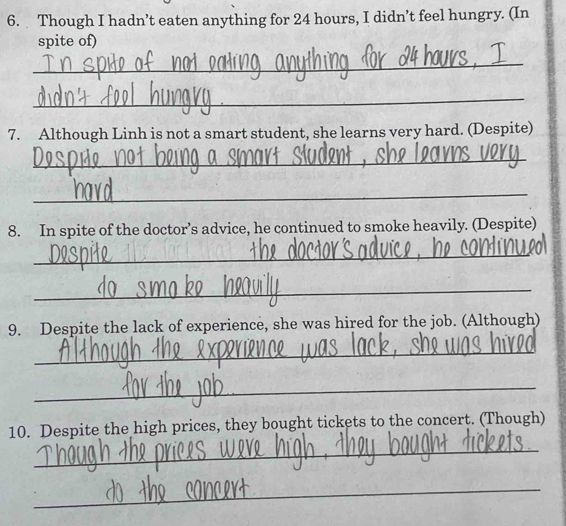 6. Though I hadn't eaten anything for 24 hours, I didn't feel hungry. (In
spite of)
In spite of not eating anything for 24 hours, I
didn't feel hungry.
7. Although Linh is not a smart student, she learns very hard. (Despite)
Despite not being a smart student, she learns very
hard
8. In spite of the doctor's advice, he continued to smoke heavily. (Despite)
Despite the doctor's advice, he continued
to smoke heavily
9. Despite the lack of experience, she was hired for the job. (Although)
Although the experience was lack, she was hired
for the job.
10. Despite the high prices, they bought tickets to the concert. (Though)
Though the prices were high, they bought tickets
to the concert.